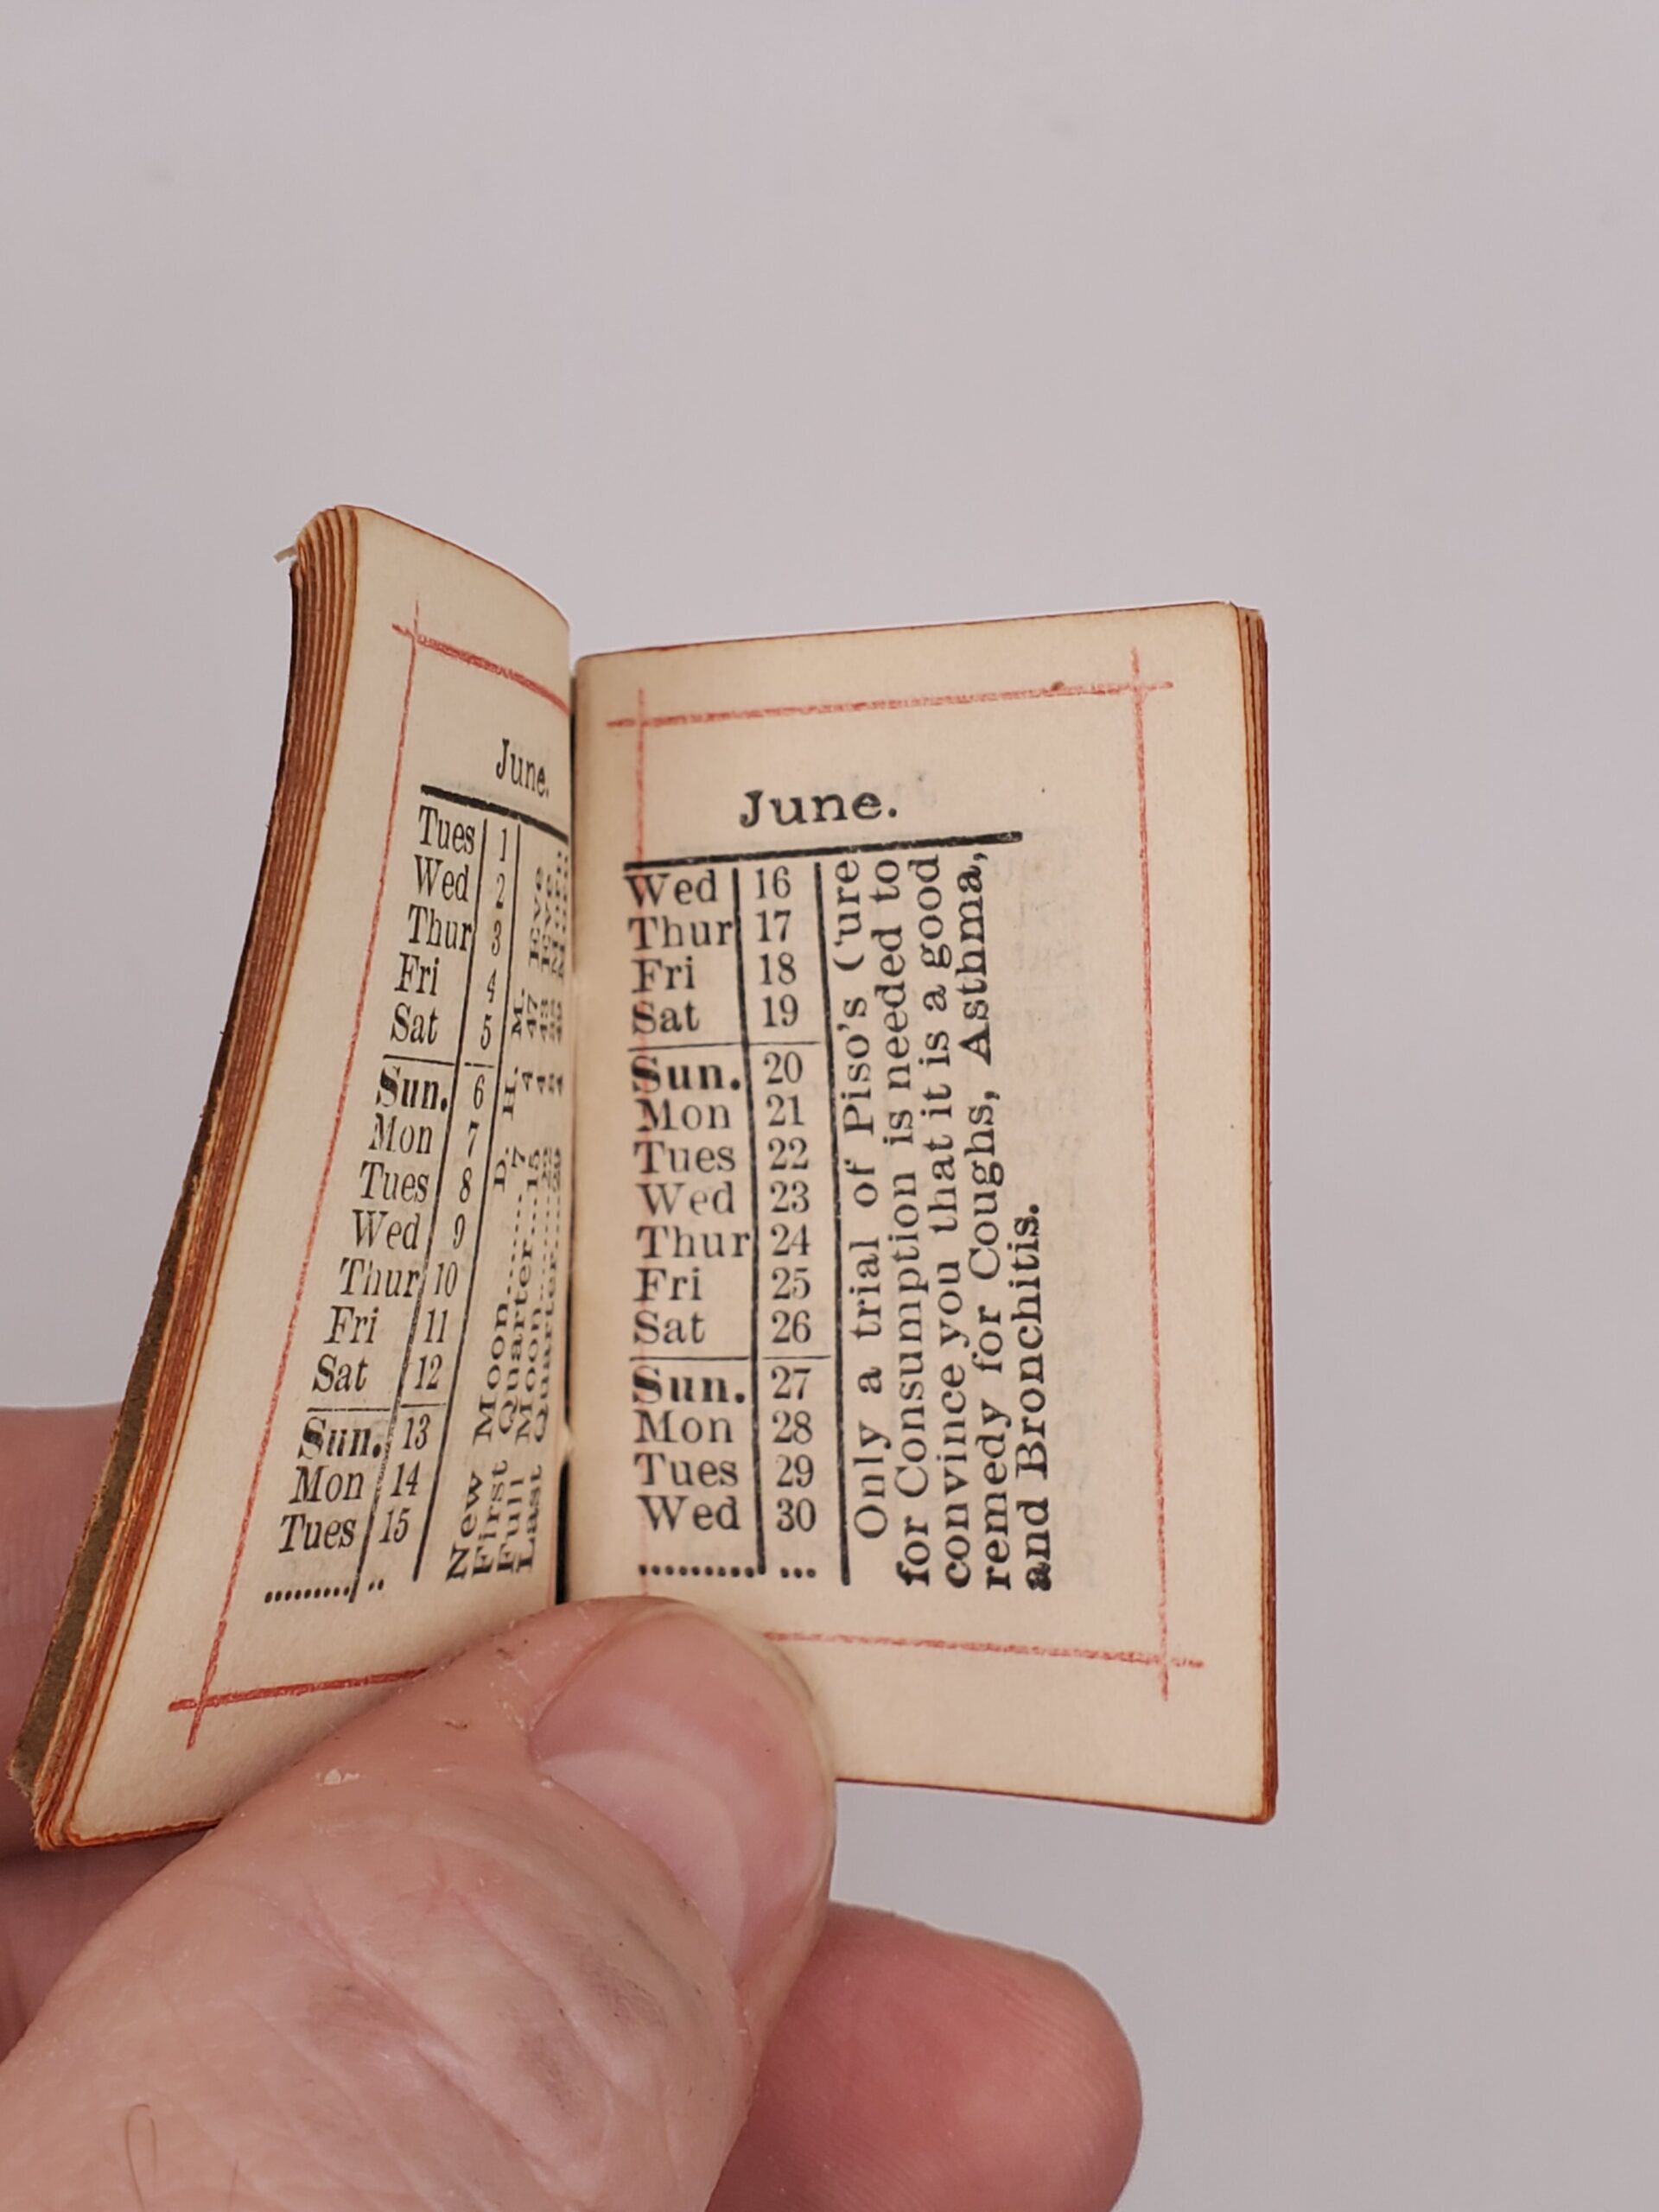 June.
Tues 1
Wed 2
Thur 3
Fri 4
Sat 5
Sun. 6
Mon 7
Tues 8
Wed 9
Thur 10
Fri 11
Sat 12
Sun. 13
Mon 14
Tues 15
......... ..
D. H. M.
New Moon......7
First Quarter...15
Full Moon......22
Last Quarter....29
June.
Wed 16
Thur 17
Fri 18
Sat 19
Sun. 20
Mon 21
Tues 22
Wed 23
Thur 24
Fri 25
Sat 26
Sun. 27
Mon 28
Tues 29
Wed 30
........... ...
Only a trial of Piso's Cure
for Consumption is needed to
convince you that it is a good
remedy for Coughs, Asthma,
and Bronchitis.